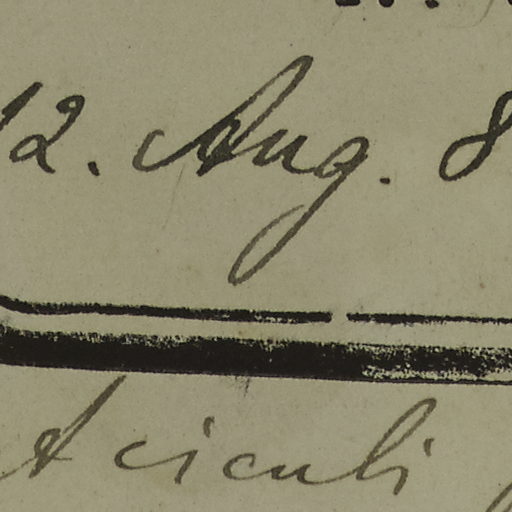 12. Aug. 8
Aciculi